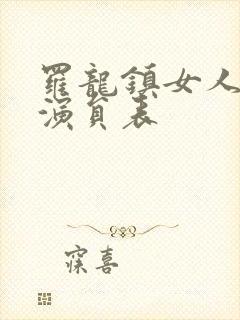 羅龍鎮女人
演員表
寐喜